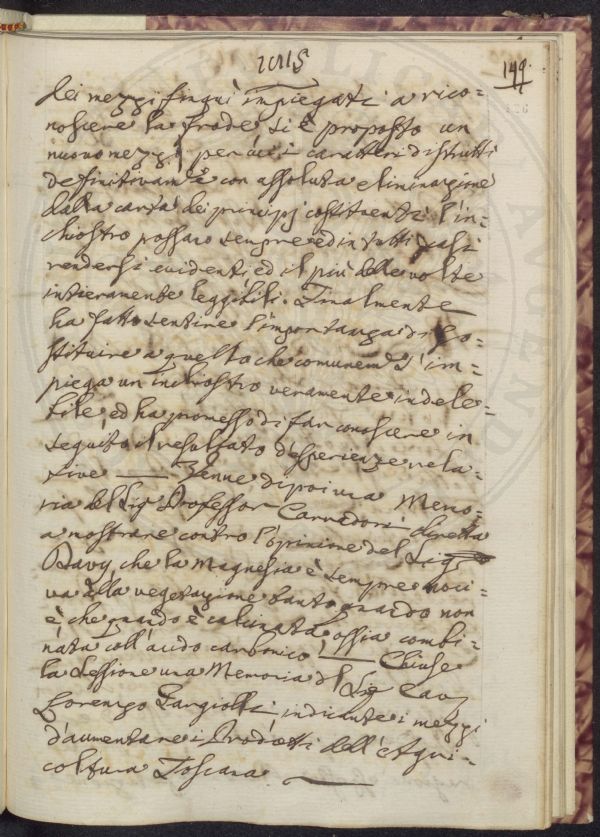 1815
149.
dei mezzi finquì impiegati a rico-
noscere la frode, si è proposto un
nuovo mezzo per cui i caratteri distrutti
definitivam.e e con assoluta eliminazione
dalla carta dei principj costituenti l'in-
chiostro possano sempre ed in tutti i casi
rendersi evidenti ed il più delle volte
intieramente leggibili. Finalmente
ha fatto sentire l'importanza di so-
stituire a quello che comunem.e s'im-
piega un inchiostro veramente indele-
bile, ed ha promesso di far conoscere in
seguito il resultato d'esperienze rela-
tive — Venne dipoi una Memo-
ria del Sig. Professor Carradori diretta
a mostrare contro l'opinione del Sig.
Davy, che la Magnesia è sempre noci-
va alla vegetazione tanto quando non
è, che quando è calcinata, ossia combi-
nata coll'acido carbonico. — Chiuse
la Sessione una Memoria del Sig. Cav.
Lorenzo Pargiolli, indicante i mezzi
d'aumentare i Prodotti dell'Agri-
coltura Toscana. —